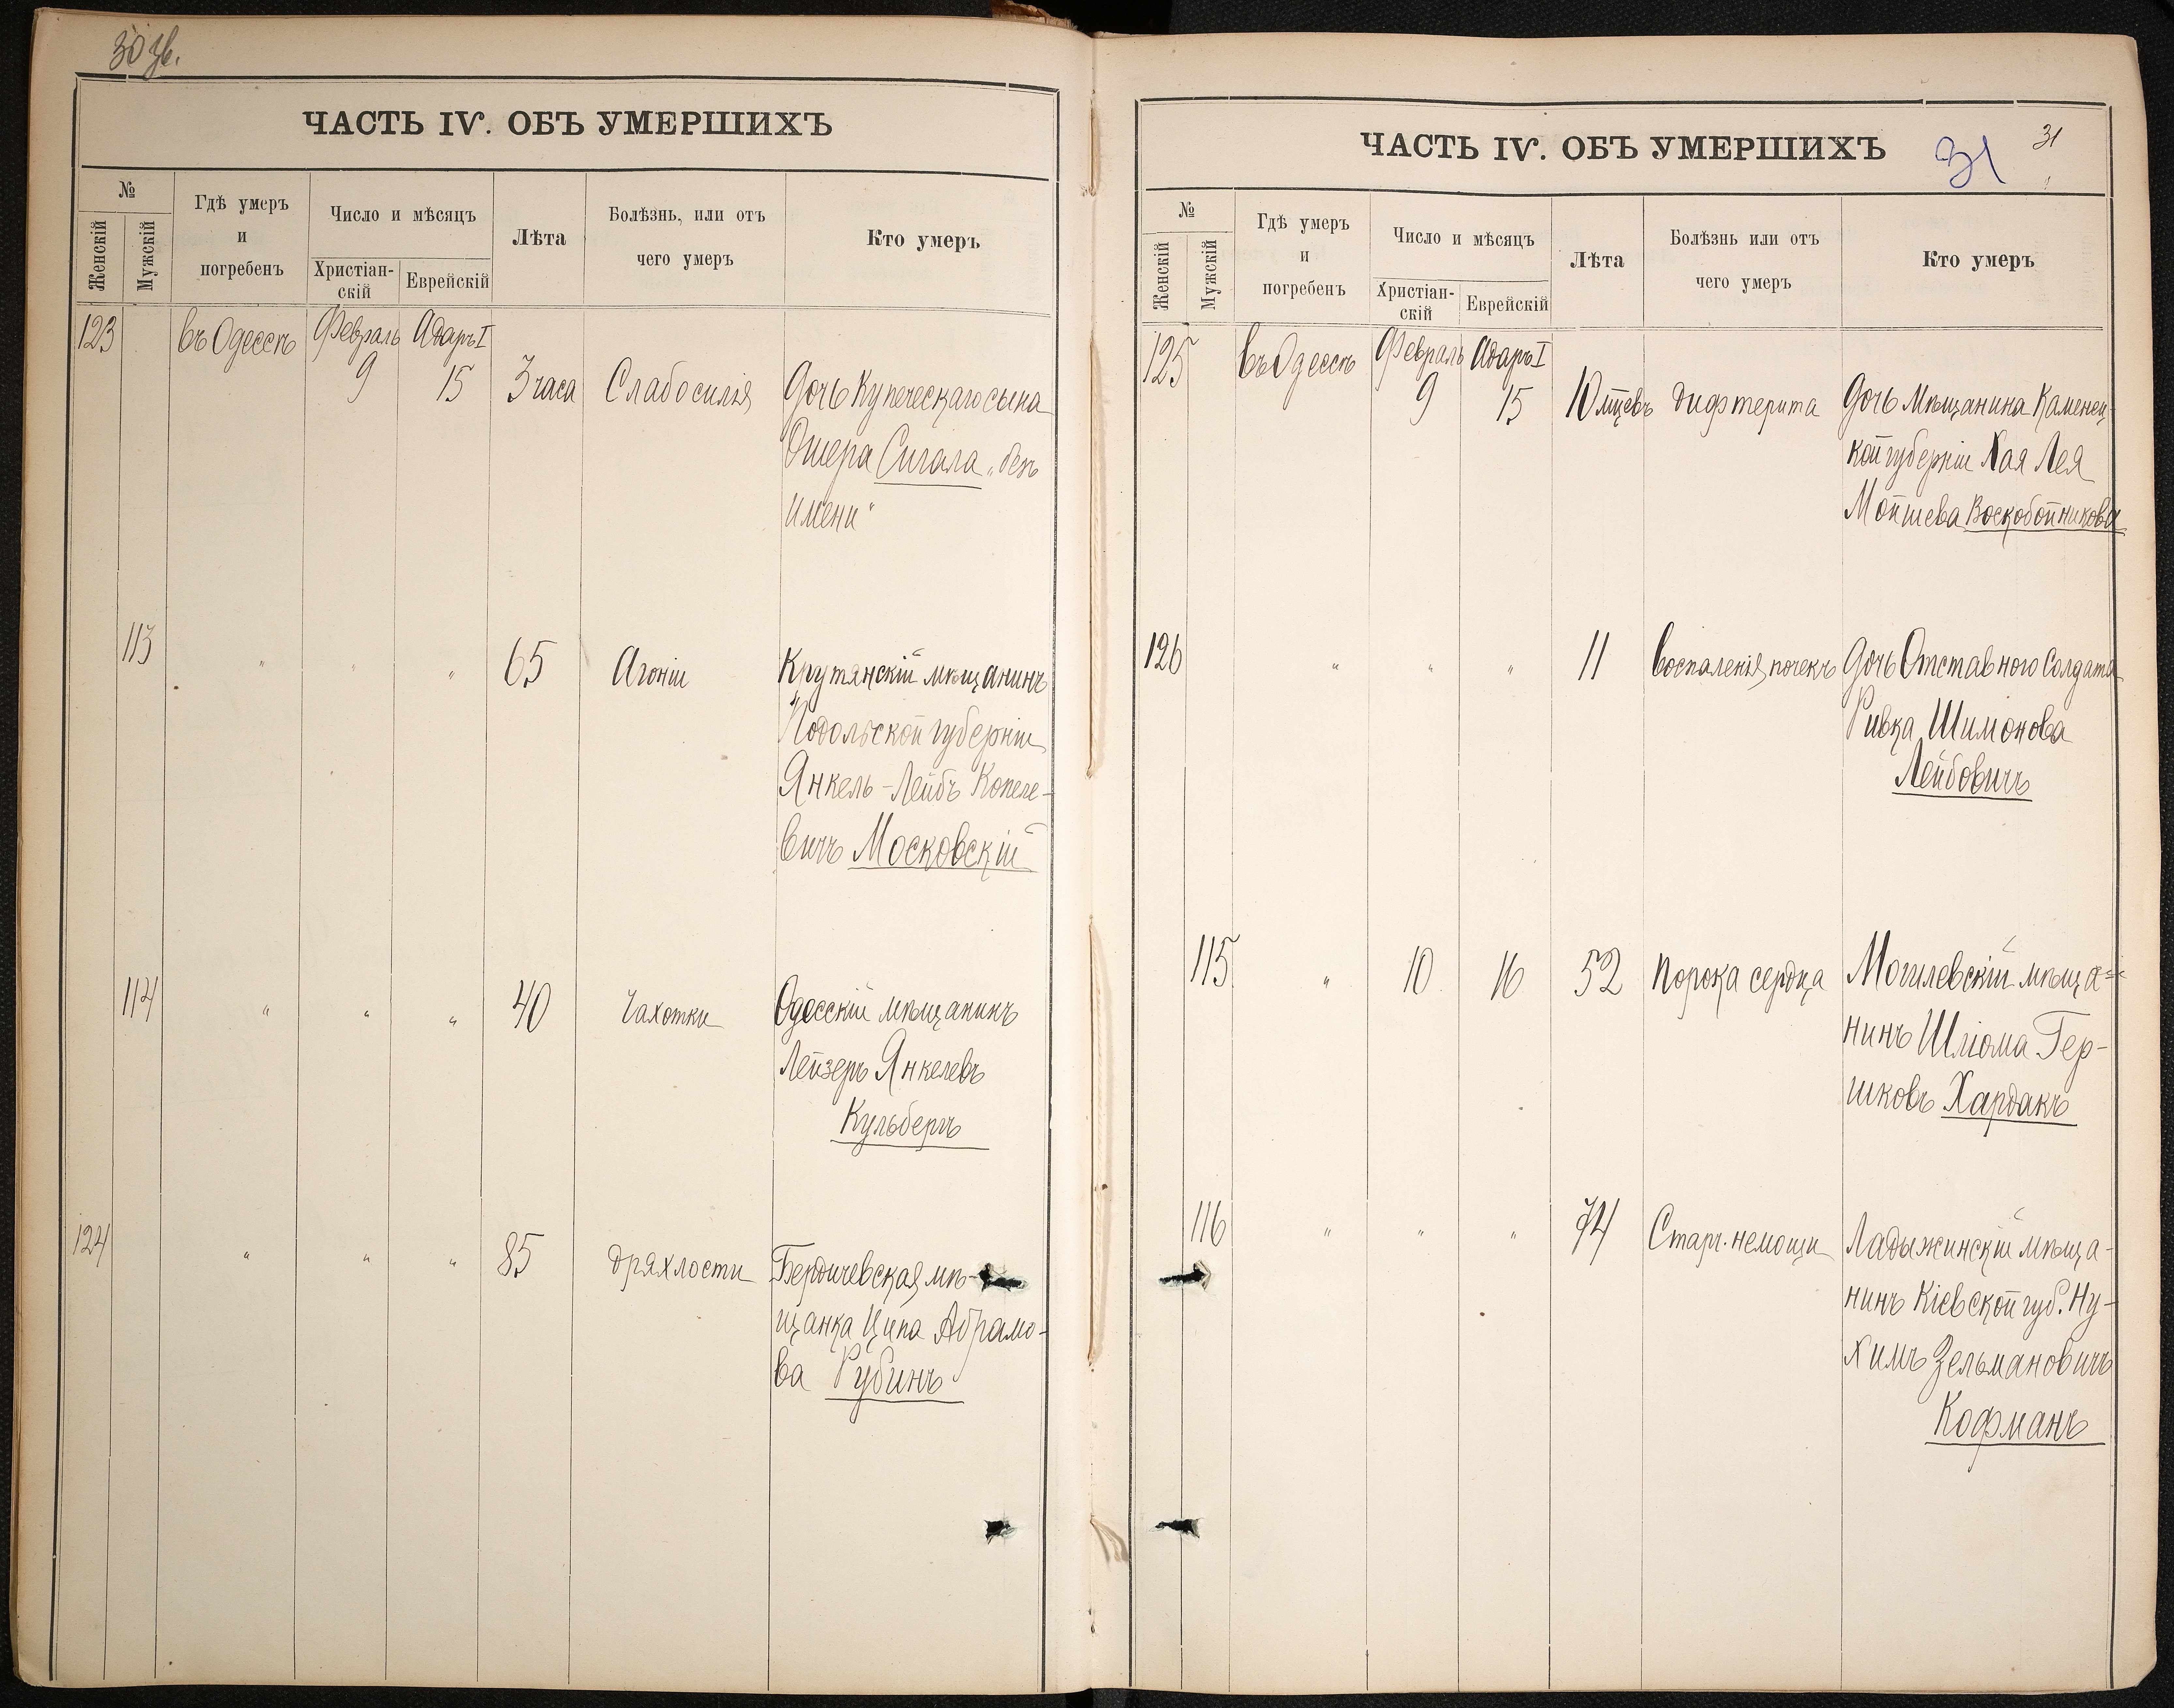 30 зв.
ЧАСТЬ IV. ОБЪ УМЕРШИХЪ
№
Женскій
Мужскій
Гдѣ умеръ
и
погребенъ
Число и мѣсяцъ
Христіан-
скій
Еврейскій
Лѣта
Болѣзнь, или отъ
чего умеръ
Кто умеръ
123 въ Одессѣ Февраль Адаръ I
9 15 3 часа Слабосилія Дочь Купеческаго сына
Ошера Сигала „безъ
имени“
113 " " " 65 Агоніи Крутянскій мѣщанинъ
Подольской губерніи
Янкель-Лейбъ Копеле-
вичъ Московскій
114 " " " 40 Чахотки Одесскій мѣщанинъ
Лейзеръ Янкелевъ
Кульбергъ
124 " " " 85 дряхлости Бердичевская мѣ-
щанка Ципа Абрамо-
ва Рубинъ
ЧАСТЬ IV. ОБЪ УМЕРШИХЪ 31 31
№
Женскій
Мужскій
Гдѣ умеръ
и
погребенъ
Число и мѣсяцъ
Христіан-
скій
Еврейскій
Лѣта
Болѣзнь или отъ
чего умеръ
Кто умеръ
125 въ Одессѣ Февраль Адаръ I
9 15 10 мѣсяцевъ дифтерита Дочь Мѣщанина Каменец-
кой губерніи Хая Лея
Мойшева Воскобойникова
126 " " " 11 Воспаленія почекъ Дочь Отставного Солдата
Ривка Шимонова
Лейбовичъ
115 " 10 16 52 порока сердца Могилевскій мѣща-
нинъ Шліома Гер-
шковъ Хардакъ
116 " " " 74 Старч. немощи Ладыжинскій мѣща-
нинъ Кіевской губ. Ну-
химъ Зельмановичъ
Кофманъ